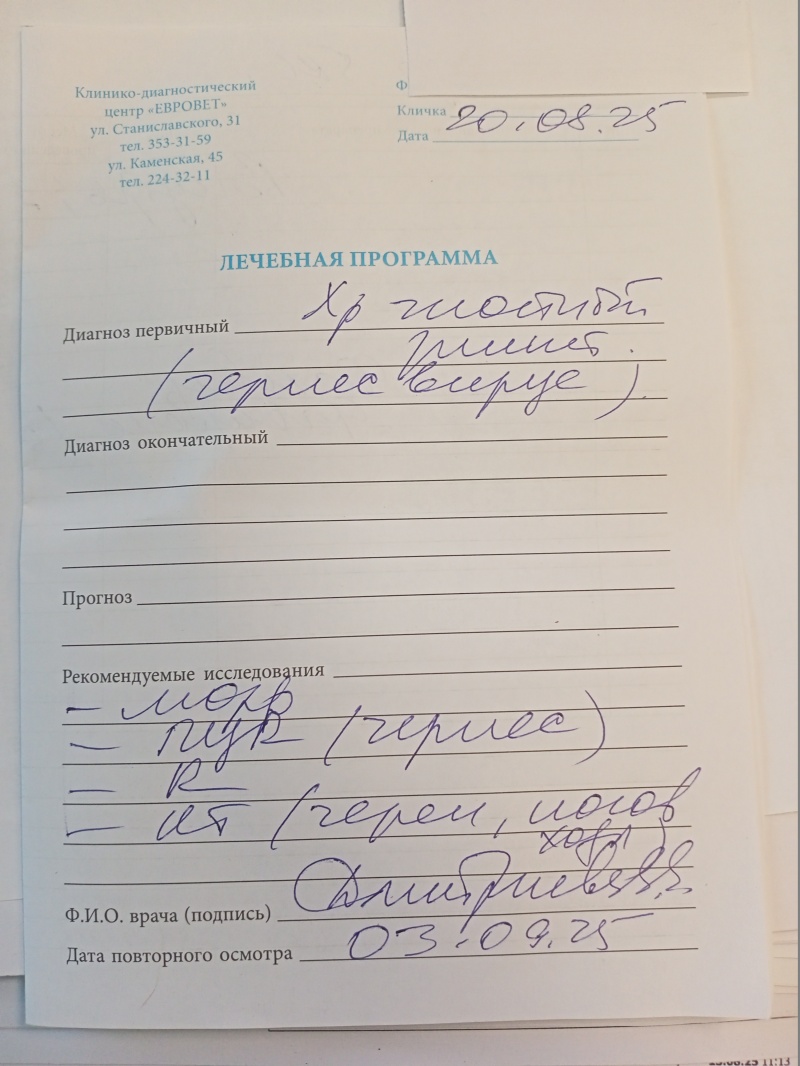 Клинико-диагностический
центр «ЕВРОВЕТ»
ул. Станиславского, 31
тел. 353-31-59
ул. Каменская, 45
тел. 224-32-11
Ф
Кличка
Дата 20.08.25
ЛЕЧЕБНАЯ ПРОГРАММА
Диагноз первичный Хр гностный
ринит.
(герпес вирус).
Диагноз окончательный
Прогноз
Рекомендуемые исследования
- морф
- ПЦР (герпес)
- R
- КТ (череп, носов
ходы)
Ф.И.О. врача (подпись) Дмитриева
Дата повторного осмотра 03.09.25
11:13